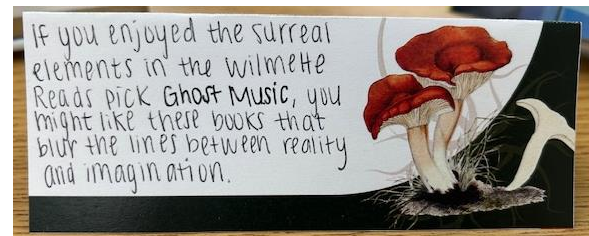 If you enjoyed the surreal
elements in the Wilmette
Reads pick Ghost Music, you
might like these books that
blur the lines between reality
and imagination.